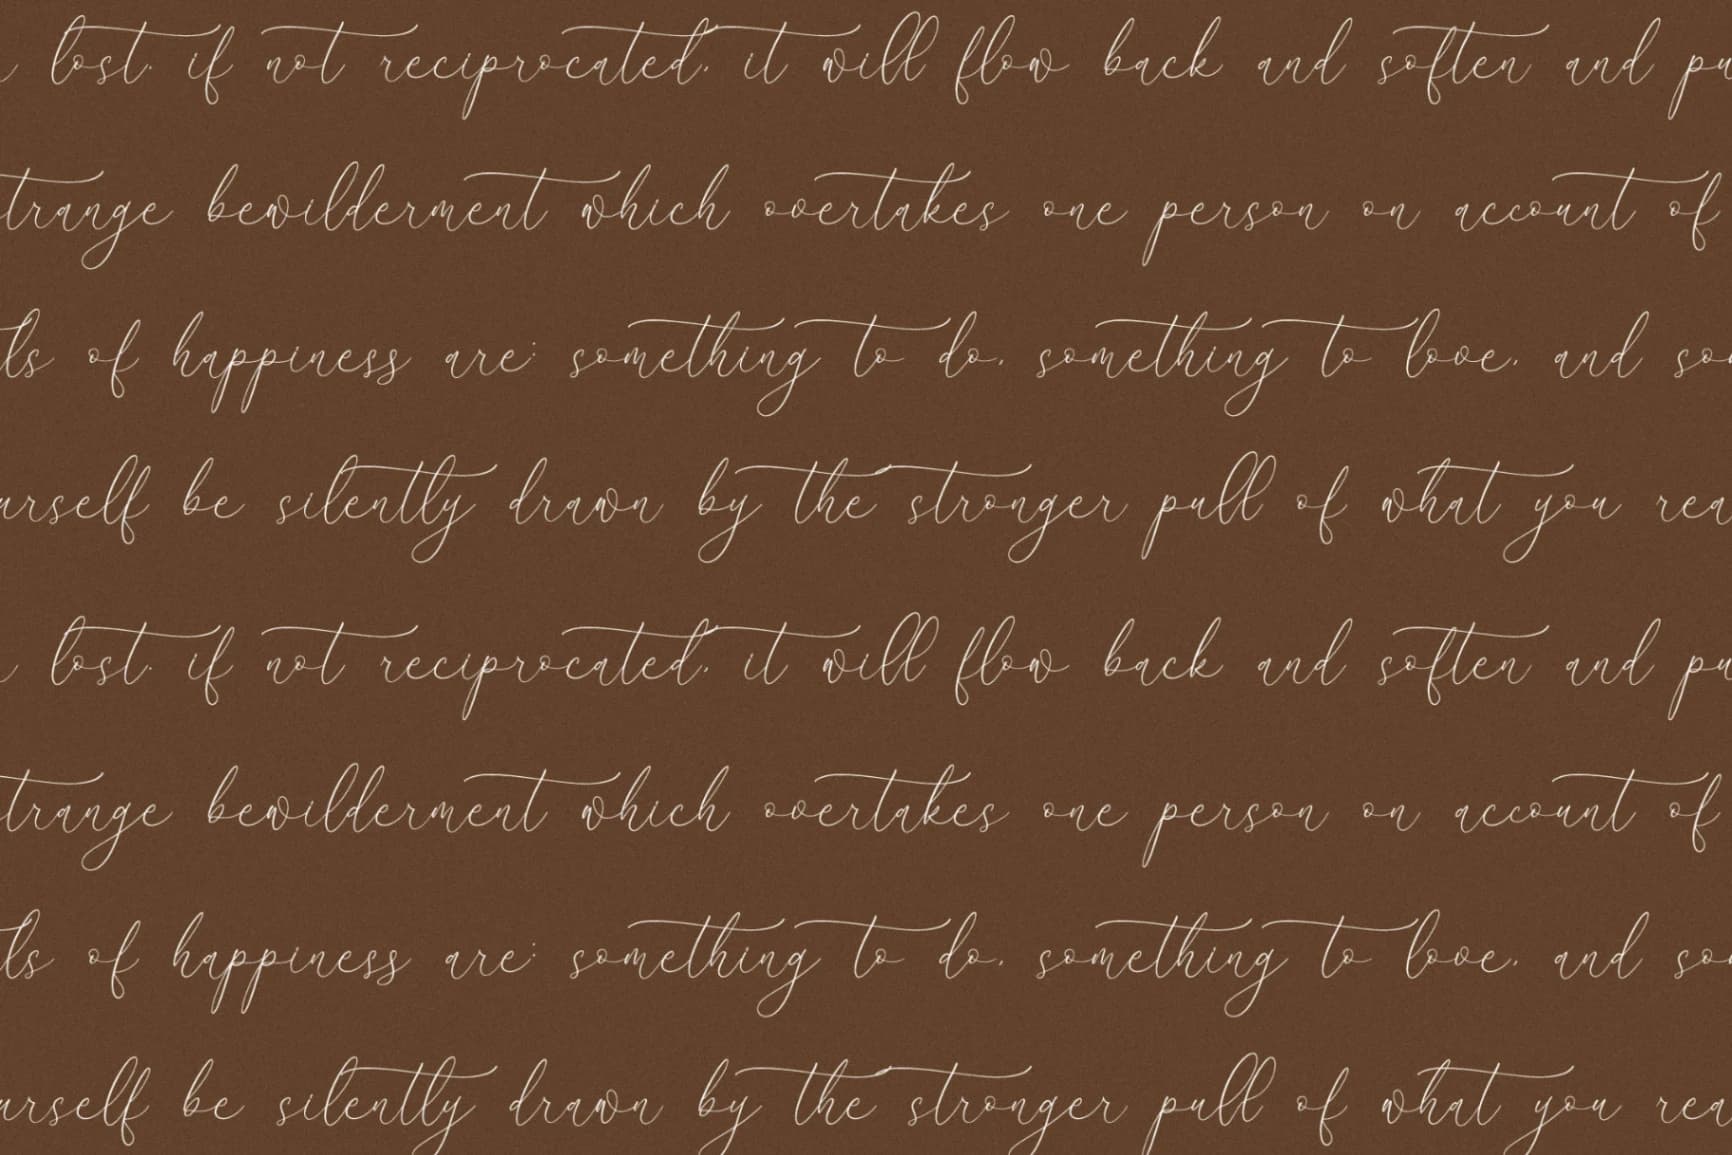 lost. if not reciprocated, it will flow back and soften and pu
trange bewilderment which overtakes one person on account of
ls of happiness are: something to do, something to love, and so
urself be silently drawn by the stronger pull of what you rea
lost. if not reciprocated, it will flow back and soften and pu
trange bewilderment which overtakes one person on account of
ls of happiness are: something to do, something to love, and so
urself be silently drawn by the stronger pull of what you rea